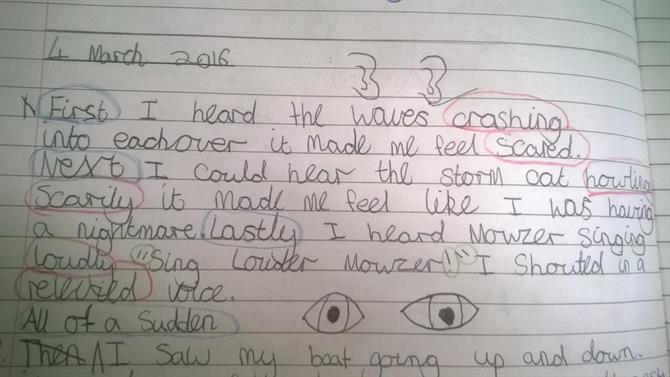 4 March 2016
First I heard the waves crashing
into eachover it made me feel scared.
Next I could hear the storm cat howling
scarily it made me feel like I was having
a nightmare. Lastly I heard Mowzer singing
loudly "Sing Louder Mowzer!" I shouted in a
relevied voice.
All of a Sudden
Then ∧ I saw my boat going up and down.